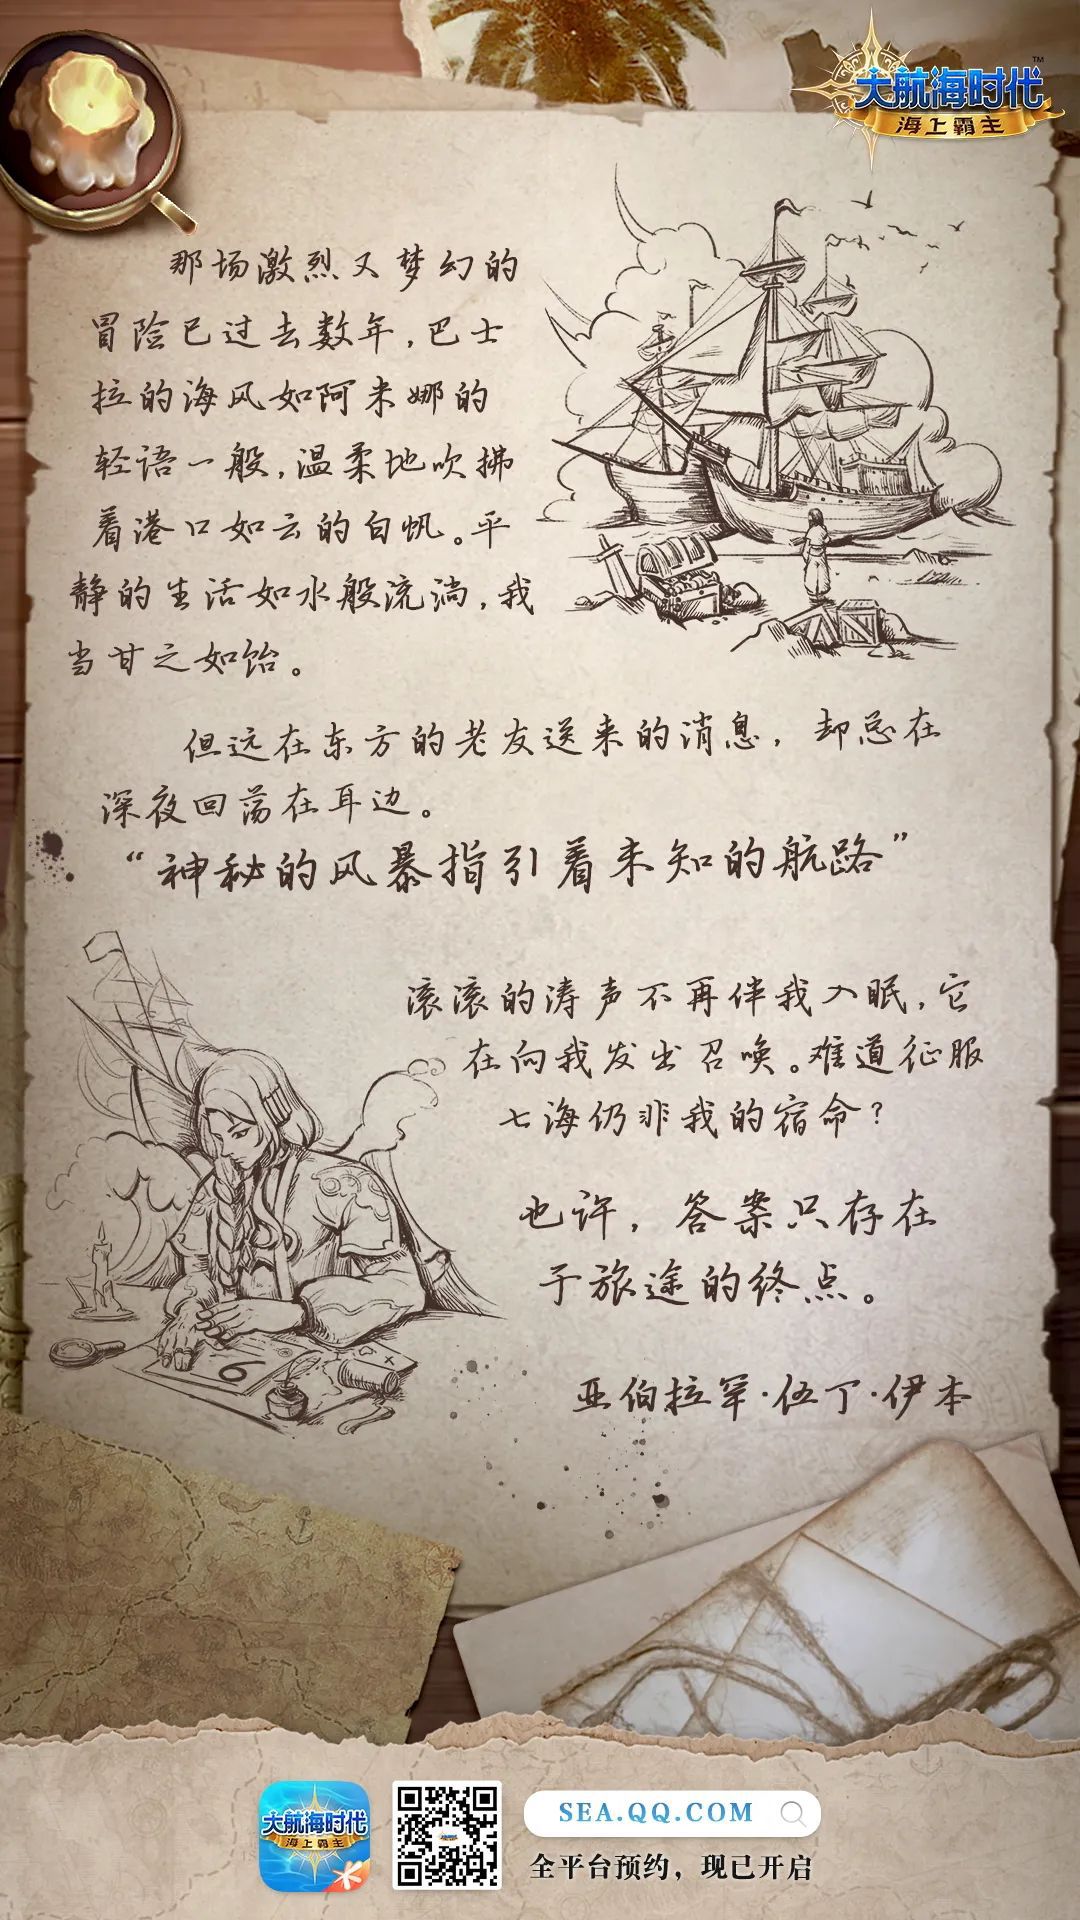 大航海时代™
海上霸主
那场激烈又梦幻的
冒险已过去数年，巴士
拉的海风如阿米娜的
轻语一般，温柔地吹拂
着港口如云的白帆。平
静的生活如水般流淌，我
当甘之如饴。
但远在东方的老友送来的消息，却总在
深夜回荡在耳边。
“神秘的风暴指引着未知的航路”
滚滚的涛声不再伴我入眠，它
在向我发出召唤。难道征服
七海仍非我的宿命？
也许，答案只存在
于旅途的终点。
6
亚伯拉罕·伍丁·伊本
大航海时代
海上霸主
SEA.QQ.COM
全平台预约，现已开启